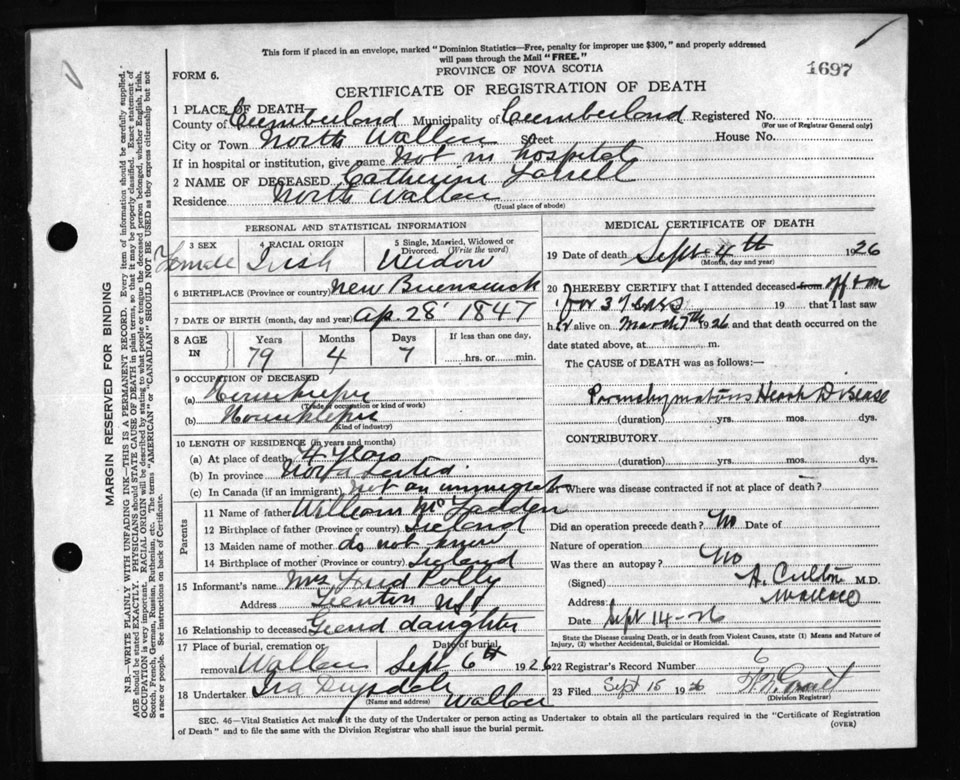 This form if placed in an envelope, marked "Dominion Statistics—Free, penalty for improper use $300," and properly addressed
will pass through the Mail "FREE."
FORM 6.
PROVINCE OF NOVA SCOTIA
1697
CERTIFICATE OF REGISTRATION OF DEATH
1 PLACE OF DEATH
County of Cumberland Municipality of Cumberland Registered No.
(For use of Registrar General only)
City or Town North Street House No.
If in hospital or institution, give name Not in hospital
2 NAME OF DECEASED Catherine
Residence North
(Usual place of abode)
PERSONAL AND STATISTICAL INFORMATION
3 SEX 4 RACIAL ORIGIN 5 Single, Married, Widowed or Divorced. (Write the word)
Female Irish Widow
6 BIRTHPLACE (Province or country) New
7 DATE OF BIRTH (month, day and year) Ap. 28 1847
8 AGE IN Years Months Days If less than one day,
79 4 7 hrs. or min.
9 OCCUPATION OF DECEASED
(a)
(Trade or occupation or kind of work)
(b)
(Kind of industry)
10 LENGTH OF RESIDENCE (in years and months)
(a) At place of death 4 years
(b) In province
(c) In Canada (if an immigrant) Not an immigrant
Parents
11 Name of father William
12 Birthplace of father (Province or country) Ireland
13 Maiden name of mother do not know
14 Birthplace of mother (Province or country) Ireland
15 Informant's name Mrs Polly
Address N.S.
16 Relationship to deceased daughter
17 Place of burial, cremation or removal Date of burial,
Sept 6th 1926
18 Undertaker Ira
(Name and address)
MEDICAL CERTIFICATE OF DEATH
19 Date of death Sept 4th 1926
(Month, day and year)
20 I HEREBY CERTIFY that I attended deceased from off & on
for 3 years 19 that I last saw
her alive on March 7th 1926 and that death occurred on the
date stated above, at m.
The CAUSE of DEATH was as follows:—
Heart Disease
(duration) yrs. mos. dys.
CONTRIBUTORY
(duration) yrs. mos. dys.
21 Where was disease contracted if not at place of death?
Did an operation precede death? No Date of
Nature of operation
Was there an autopsy? No
(Signed) A. M.D.
Address: Wallace
Date Sept 14-26
State the Disease causing Death, or in death from Violent Causes, state (1) Means and Nature of
Injury, (2) whether Accidental, Suicidal or Homicidal.
22 Registrar's Record Number 6
23 Filed Sept 15 1926
(Division Registrar)
SEC. 46—Vital Statistics Act makes it the duty of the Undertaker or person acting as Undertaker to obtain all the particulars required in the "Certificate of Registration
of Death" and to file the same with the Division Registrar who shall issue the burial permit.
(OVER)
MARGIN RESERVED FOR BINDING
N.B.—WRITE PLAINLY WITH UNFADING INK—THIS IS A PERMANENT RECORD. Every item of information should be carefully supplied.
AGE should be stated EXACTLY. PHYSICIANS should STATE CAUSE OF DEATH in plain terms, so that it may be properly classified. Exact statement of
OCCUPATION is very important. RACIAL ORIGIN will be described by stating to what people or tongue the deceased person belonged, whether English, Irish,
Scotch, French, German, Russian, Ruthenian, etc. The terms "AMERICAN" or "CANADIAN" SHOULD NOT BE USED as they express citizenship but not
a race or people. See instructions on back of Certificate.